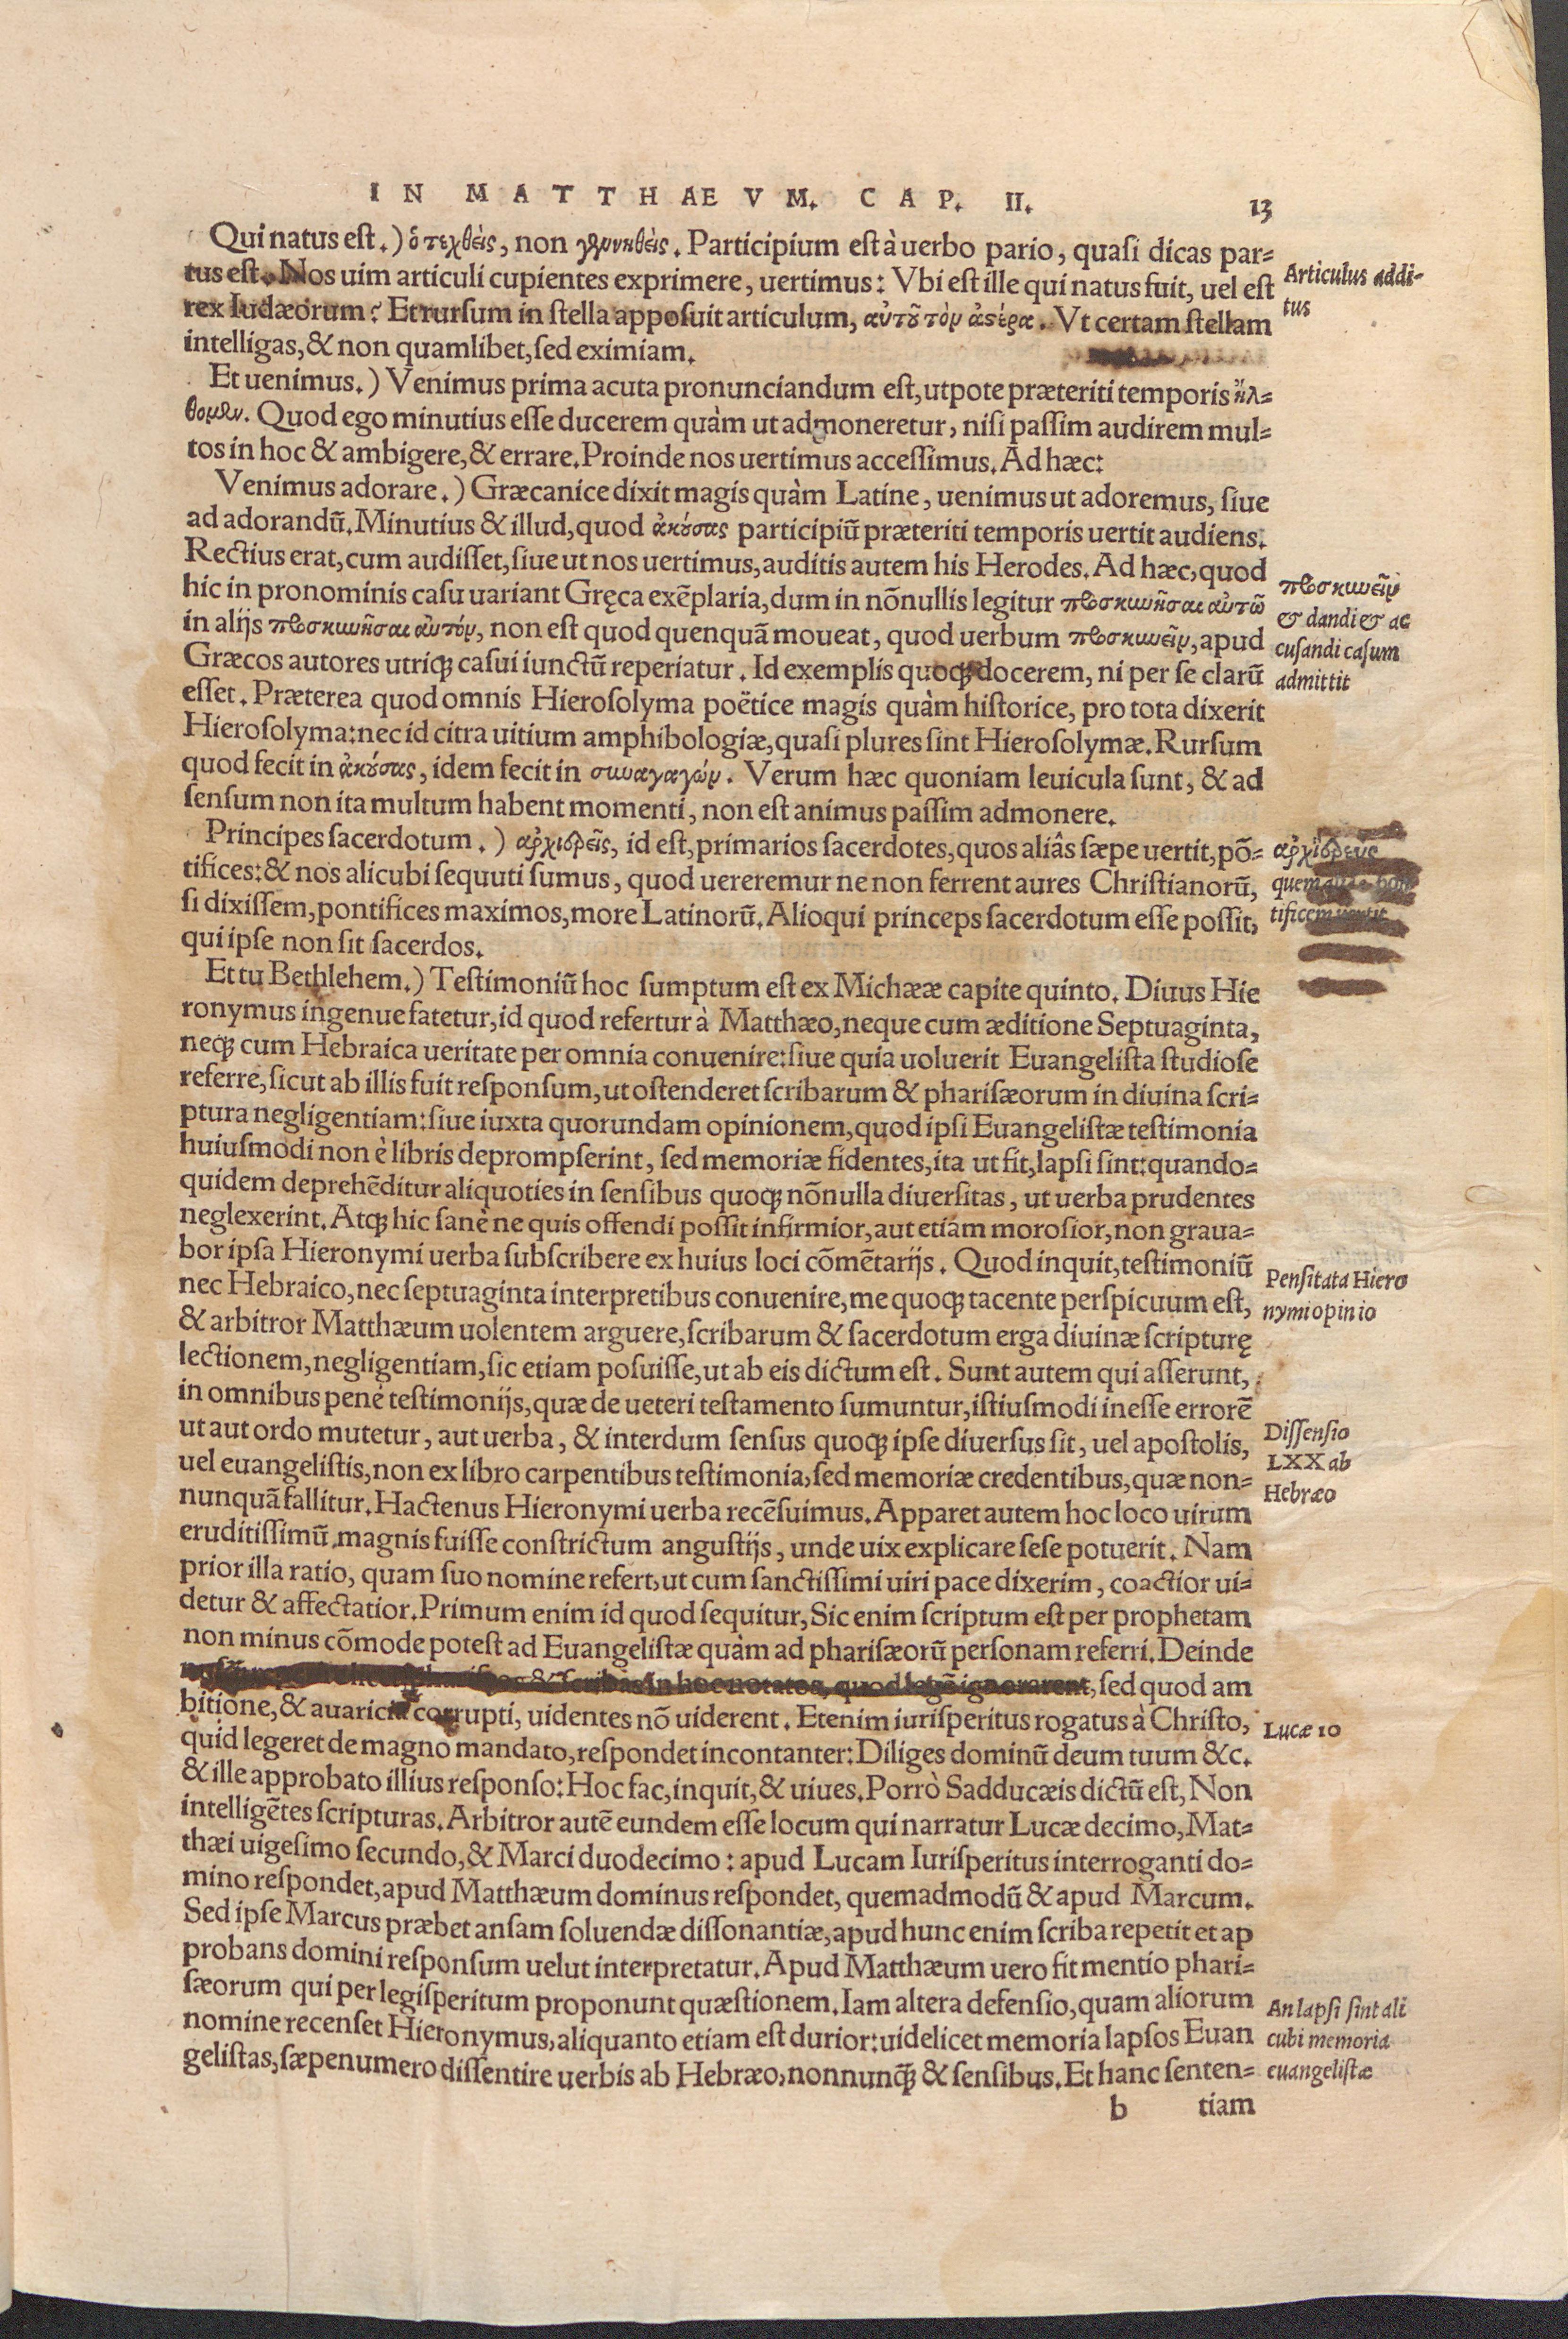 IN MATTHAEVM. CAP. II. 13
Qui natus est.) ὁ τεχθεὶς, non γεννηθεὶς. Participium est à uerbo pario, quasi dicas par-
tus est. Nos uim articuli cupientes exprimere, uertimus: Vbi est ille qui natus fuit, uel est
rex Iudæorum? Et rursum in stella apposuit articulum, αὐτοῦ τὸν ἀστέρα. Vt certam stellam
intelligas, & non quamlibet, sed eximiam.
Articulus addi-
tus
Et uenimus.) Venimus prima acuta pronunciandum est, utpote præteriti temporis ἤλ-
θομεν. Quod ego minutius esse ducerem quàm ut admoneretur, nisi passim audirem mul-
tos in hoc & ambigere, & errare. Proinde nos uertimus accessimus. Ad hæc:
Venimus adorare.) Græcanice dixit magis quàm Latine, uenimus ut adoremus, siue
ad adorandũ. Minutius & illud, quod ἀκούσας participiũ præteriti temporis uertit audiens.
Rectius erat, cum audisset, siue ut nos uertimus, auditis autem his Herodes. Ad hæc, quod
hic in pronominis casu uariant Gręca exẽplaria, dum in nõnullis legitur προσκυνῆσαι αὐτῷ
in alijs προσκυνῆσαι αὐτόν, non est quod quenquã moueat, quod uerbum προσκυνεῖν, apud
Græcos autores utriq; casui iunctũ reperiatur. Id exemplis quoq; docerem, ni per se clarũ
esset. Præterea quod omnis Hierosolyma poëtice magis quàm historice, pro tota dixerit
Hierosolyma: nec id citra uitium amphibologiæ, quasi plures sint Hierosolymæ. Rursum
quod fecit in ἀκούσας, idem fecit in συναγαγών. Verum hæc quoniam leuicula sunt, & ad
sensum non ita multum habent momenti, non est animus passim admonere.
προσκυνεῖν
& dandi & ac
cusandi casum
admittit
Principes sacerdotum.) ἀρχιερεῖς, id est, primarios sacerdotes, quos aliâs sæpe uertit, põ-
tifices: & nos alicubi sequuti sumus, quod uereremur ne non ferrent aures Christianorũ,
si dixissem, pontifices maximos, more Latinorũ. Alioqui princeps sacerdotum esse possit,
qui ipse non sit sacerdos.
ἀρχιερεὺς
quem
tificem uertit
Et tu Bethlehem.) Testimoniũ hoc sumptum est ex Michææ capite quinto. Diuus Hie
ronymus ingenue fatetur, id quod refertur à Matthæo, neque cum æditione Septuaginta,
neq; cum Hebraica ueritate per omnia conuenire: siue quia uoluerit Euangelista studiose
referre, sicut ab illis fuit responsum, ut ostenderet scribarum & pharisæorum in diuina scri-
ptura negligentiam: siue iuxta quorundam opinionem, quod ipsi Euangelistæ testimonia
huiusmodi non è libris deprompserint, sed memoriæ fidentes, ita ut fit, lapsi sint: quando-
quidem deprehẽditur aliquoties in sensibus quoq; nõnulla diuersitas, ut uerba prudentes
neglexerint. Atq; hic sanè ne quis offendi possit infirmior, aut etiam morosior, non graua-
bor ipsa Hieronymi uerba subscribere ex huius loci cõmẽtarijs. Quod inquit, testimoniũ
nec Hebraico, nec septuaginta interpretibus conuenire, me quoq; tacente perspicuum est,
& arbitror Matthæum uolentem arguere, scribarum & sacerdotum erga diuinæ scripturę
lectionem, negligentiam, sic etiam posuisse, ut ab eis dictum est. Sunt autem qui asserunt,
in omnibus penè testimonijs, quæ de ueteri testamento sumuntur, istiusmodi inesse errorẽ
ut aut ordo mutetur, aut uerba, & interdum sensus quoq; ipse diuersus sit, uel apostolis,
uel euangelistis, non ex libro carpentibus testimonia, sed memoriæ credentibus, quæ non-
nunquã fallitur. Hactenus Hieronymi uerba recẽsuimus. Apparet autem hoc loco uirum
eruditissimũ, magnis fuisse constrictum angustijs, unde uix explicare sese potuerit. Nam
prior illa ratio, quam suo nomine refert, ut cum sanctissimi uiri pace dixerim, coactior ui-
detur & affectatior. Primum enim id quod sequitur, Sic enim scriptum est per prophetam
non minus cõmode potest ad Euangelistæ quàm ad pharisæorũ personam referri. Deinde
& scribas in hoc notatos, quod legẽ ignorarent, sed quod am
bitione, & auaricia corrupti, uidentes nõ uiderent. Etenim iurisperitus rogatus à Christo,
quid legeret de magno mandato, respondet incontanter: Diliges dominũ deum tuum &c.
& ille approbato illius responso: Hoc fac, inquit, & uiues. Porrò Sadducæis dictũ est, Non
intelligẽtes scripturas. Arbitror autẽ eundem esse locum qui narratur Lucæ decimo, Mat-
thæi uigesimo secundo, & Marci duodecimo: apud Lucam Iurisperitus interroganti do-
mino respondet, apud Matthæum dominus respondet, quemadmodũ & apud Marcum.
Sed ipse Marcus præbet ansam soluendæ dissonantiæ, apud hunc enim scriba repetit et ap
probans domini responsum uelut interpretatur. Apud Matthæum uero fit mentio phari-
sæorum qui per legisperitum proponunt quæstionem. Iam altera defensio, quam aliorum
nomine recenset Hieronymus, aliquanto etiam est durior: uidelicet memoria lapsos Euan
gelistas, sæpenumero dissentire uerbis ab Hebræo, nonnunq̃; & sensibus. Et hanc senten-
Pensitata Hiero
nymi opinio
Dissensio
LXX ab
Hebræo
Lucæ 10
An lapsi sint ali
cubi memoria
euangelistæ
b tiam